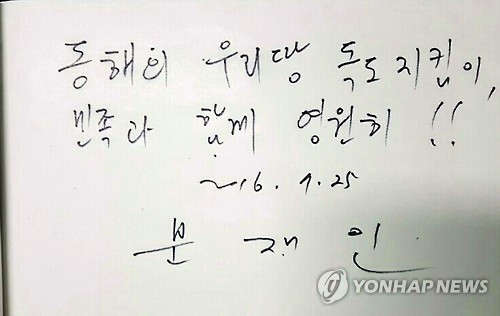 동해의 우리땅 독도지킴이,
민족과 함께 영원히 !!
2016. 7. 25
문 재 인
YONHAP NEWS